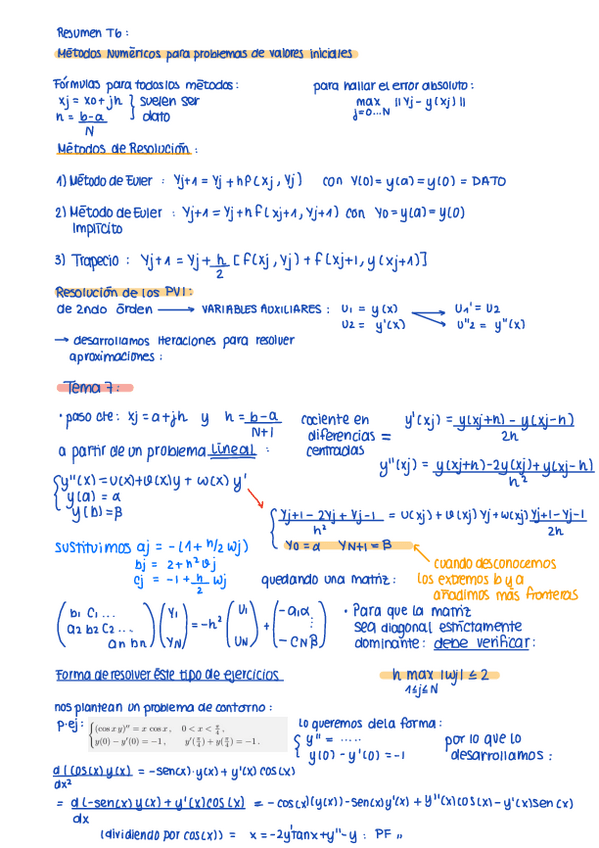 Resumen T6:
Métodos Numéricos para problemas de valores iniciales
Fórmulas para todos los métodos:
xj = x0 + jh } suelen ser
h = b-a / N } dato
para hallar el error absoluto:
max ||Yj - y(xj)||
j=0...N
Métodos de Resolución:
1) Método de Euler : Yj+1 = Yj + hf(xj, Yj) con Y(0) = y(a) = y(0) = DATO
2) Método de Euler : Yj+1 = Yj + hf(xj+1, Yj+1) con Y0 = y(a) = y(0)
Implícito
3) Trapecio : Yj+1 = Yj + h/2 [f(xj, Yj) + f(xj+1, y(xj+1)]
Resolución de los PVI:
de 2ndo órden → VARIABLES AUXILIARES : U1 = y(x) U1' = U2
U2 = y'(x) U''2 = y''(x)
→ desarrollamos iteraciones para resolver
aproximaciones:
Tema 7:
· paso cte: xj = a + jh y h = b-a / N+1
cociente en
diferencias =
centradas
y'(xj) = y(xj+h) - y(xj-h) / 2h
y''(xj) = y(xj+h) - 2y(xj) + y(xj-h) / h²
a partir de un problema lineal :
{ y''(x) = u(x) + v(x)y + w(x)y'
y(a) = α
y(b) = β
{ Yj+1 - 2Yj + Yj-1 / h² = u(xj) + v(xj)Yj + w(xj) Yj+1 - Yj-1 / 2h
Y0 = α YN+1 = β
sustituimos aj = -(1 + h/2 wj)
bj = 2 + h² vj
cj = -1 + h/2 wj
quedando una matriz:
cuando desconocemos
los extremos b y a
añadimos más fronteras
( b1 C1 ... ) ( Y1 ) = -h² ( U1 ) + ( -a1α )
( a2 b2 C2 ... ) ( ⋮ )
( an bn ) ( YN ) ( UN ) ( -CNβ )
· Para que la matriz
sea diagonal estrictamente
dominante: debe verificar:
h max |wj| ≤ 2
1≤j≤N
Forma de resolver éste tipo de ejercicios
nos plantean un problema de contorno:
p.ej: { (cos x y)'' = x cos x, 0 < x < π/4,
y(0) − y'(0) = −1, y'(π/4) + y(π/4) = −1.
lo queremos de la forma:
{ y'' = .....
y(0) - y'(0) = -1
por lo que lo
desarrollamos:
d((cos(x)y(x) / dx² = -sen(x)·y(x) + y'(x)cos(x)
= d(-sen(x)y(x) + y'(x)cos(x) / dx = -cos(x)(y(x)) - sen(x)y'(x) + y''(x)cos(x) - y'(x)sen(x)
(dividiendo por cos(x)) = x = -2y'tanx + y'' - y : PF